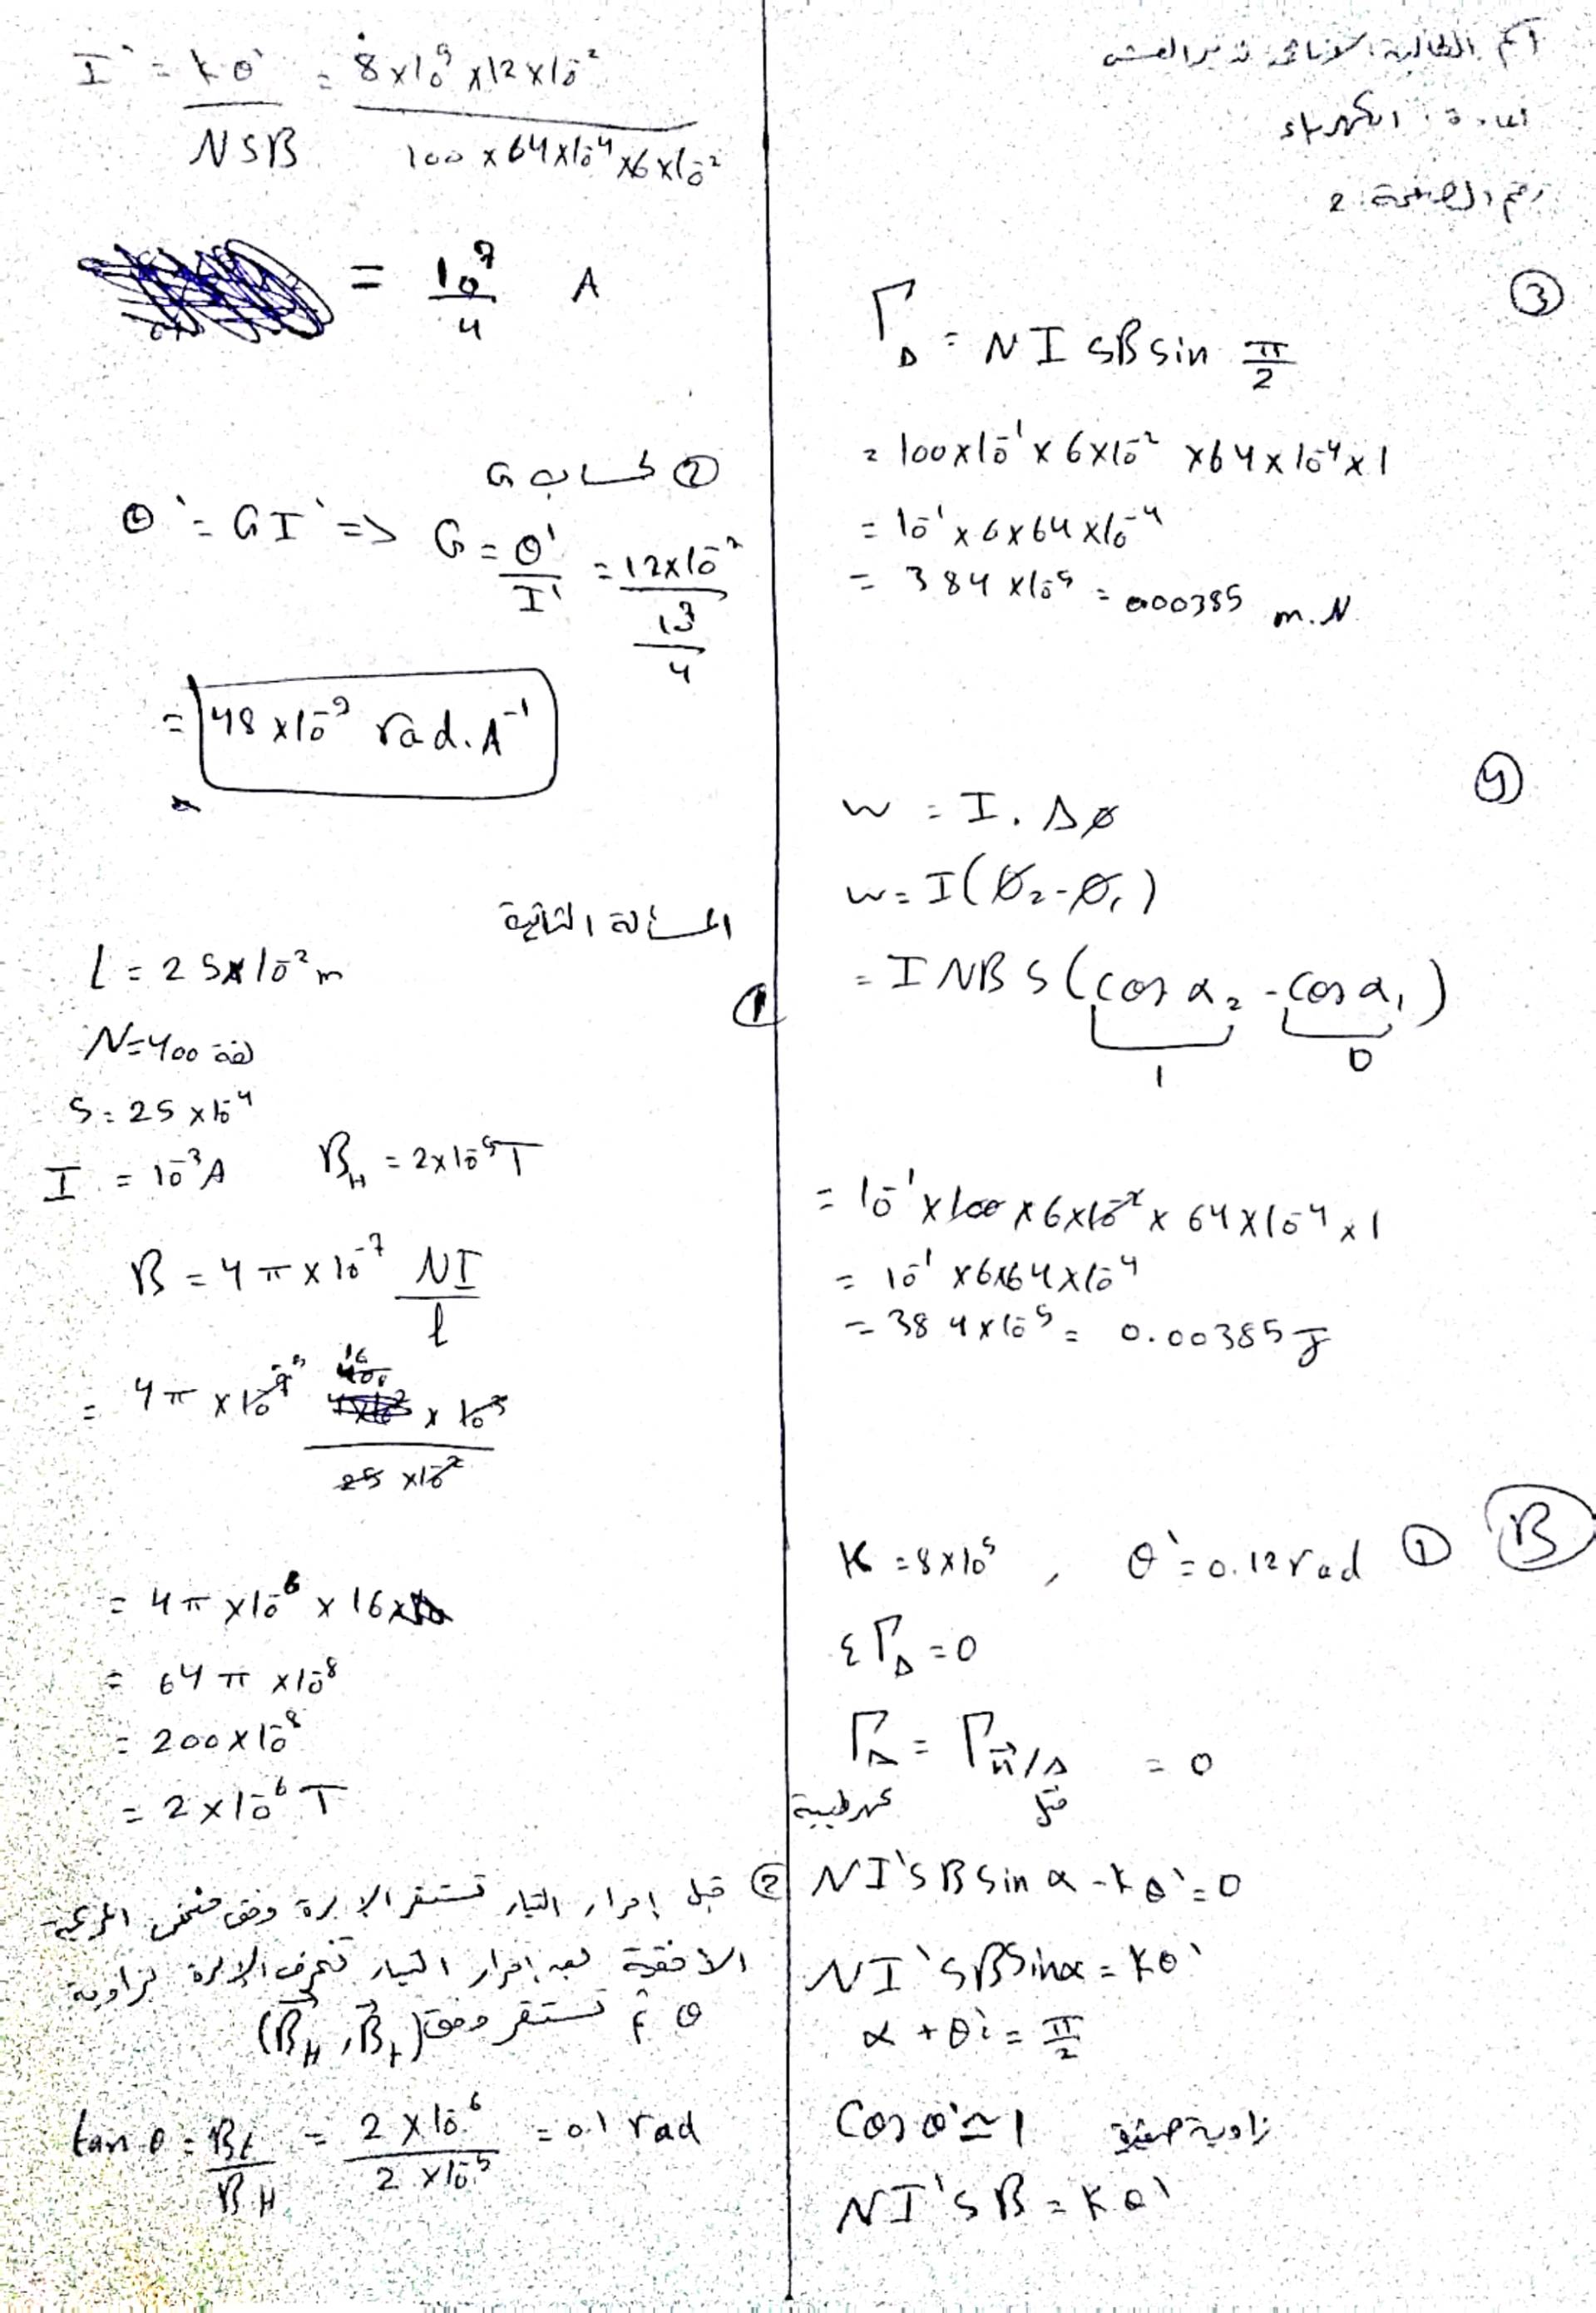 رقم الصفحة: 2
③
Γ_Δ = N I S B sin π/2
= 100×10⁻¹ × 6×10⁻² × 64×10⁻⁴ × 1
= 10⁻¹ × 6 × 64 × 10⁻⁴
= 384 × 10⁻⁵ = 0.00385 m.N
④
W = I . Δφ
W = I(φ₂ - φ₁)
= I N B S (cos α₂ - cos α₁)
1 0
= 10⁻¹ × 100 × 6×10⁻² × 64×10⁻⁴ × 1
= 10⁻¹ × 6×64×10⁻⁴
= 384×10⁻⁵ = 0.00385 J
Ⓑ ① K = 8×10⁻⁵ , θ' = 0.12 rad
Σ Γ_Δ = 0
Γ_Δ = Γ_η/Δ = 0
كهرطيسية فتل
N I' S B sin α - k θ' = 0
N I' S B sin α = k θ'
α + θ' = π/2
cos θ' ≃ 1 زاوية صغيرة
N I' S B = K θ'
I' = kθ'/NSB = 8×10⁻⁵ × 12×10⁻² / 100 × 64×10⁻⁴ × 6×10⁻²
= 10⁻³/4 A
② لحساب G
θ' = G I' => G = θ'/I' = 12×10⁻² / 10⁻³/4
= 48×10⁻² rad.A⁻¹
المسألة الثانية
①
l = 25×10⁻² m
N = 400 لفة
S = 25×10⁻⁴
I = 10⁻³ A B_H = 2×10⁻⁵ T
B = 4π × 10⁻⁷ NI/l
= 4π × 10⁻⁷ 400 × 10⁻³ / 25 × 10⁻²
= 4π × 10⁻⁸ × 16
= 64π × 10⁻⁸
= 200 × 10⁻⁸
= 2 × 10⁻⁶ T
② قبل إمرار التيار تستقر الإبرة وفق منحى المركبة
الأفقية بعد إمرار التيار تنحرف الإبرة بزاوية
θ ثم تستقر وفق (B_H , B_t)
tan θ = B_t/B_H = 2×10⁻⁶ / 2×10⁻⁵ = 0.1 rad